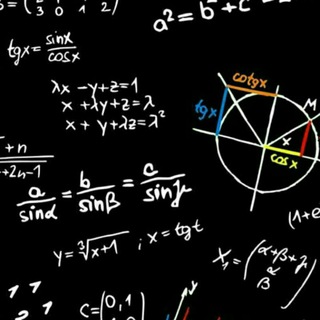 3 0 1 2
a² = b² + c² -
tgx = sinx/cosx
λx - y + z = 1
x + λy + z = λ
x + y + λz = λ²
cotgx
tgx
M
x
cosx
+ n
+ 2n-1
a/sinα = b/sinβ = c/sinμ
y = ∛(x+1) ; x = tgt
(1+
X₁ = (α+β+
α
β
C = (0,1